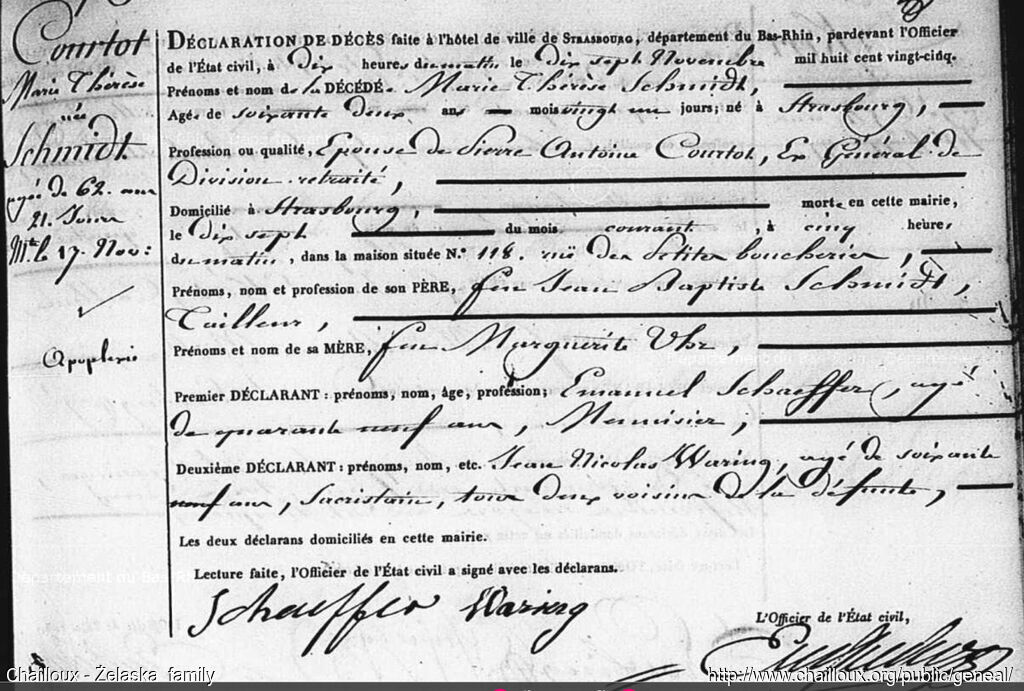 Courtot
Marie Thérèse
née
Schmidt
agée de 62. ans
21. Jours
Mte le 17. Nov:
Apoplexie
DÉCLARATION DE DÉCÈS faite à l'hôtel de ville de STRASBOURG, département du Bas-Rhin, pardevant l'Officier
de l'État civil, à Dix heures du matin le dix sept Novembre mil huit cent vingt-cinq.
Prénoms et nom de la DÉCÉDÉe Marie Thérèse Schmidt,
Agée de soixante deux ans — mois vingt un jours; né à Strasbourg,
Profession ou qualité, Epouse de Pierre Antoine Courtot, Ex Général de
Division retraité,
Domicilié à Strasbourg, morte en cette mairie,
le dix sept du mois courant, à cinq heures
du matin, dans la maison située N.° 118. rue des Petites boucheries,
Prénoms, nom et profession de son PÈRE, feu Jean Baptiste Schmidt,
Tailleur,
Prénoms et nom de sa MÈRE, feue Marguerite Uhr,
Premier DÉCLARANT : prénoms, nom, âge, profession; Emanuel Schaeffer, agé
de quarante neuf ans, Menuisier,
Deuxième DÉCLARANT : prénoms, nom, etc. Jean Nicolas Waring, agé de soixante
neuf ans, Sacristain, tous deux voisins de la défunte,
Les deux déclarans domiciliés en cette mairie.
Lecture faite, l'Officier de l'État civil a signé avec les déclarans.
Schaeffer Waring
L'Officier de l'État civil,
Département du Bas-Rhin
Chailloux - Żelaska family
http://www.chailloux.org/public/geneal/